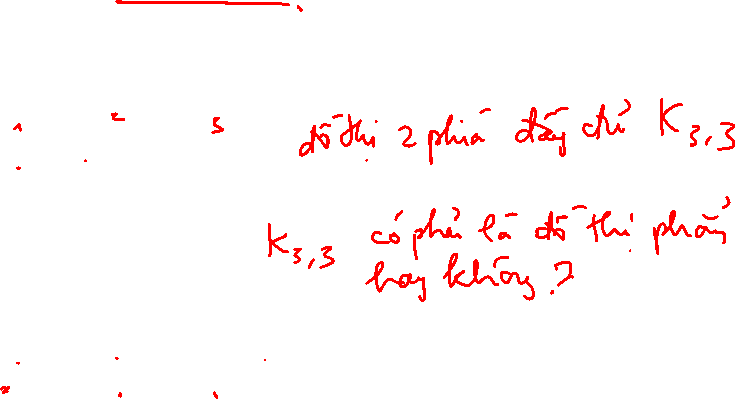 1 2 3
đồ thị 2 phía đầy đủ K3,3
K3,3 có phải là đồ thị phẳng
hay không?